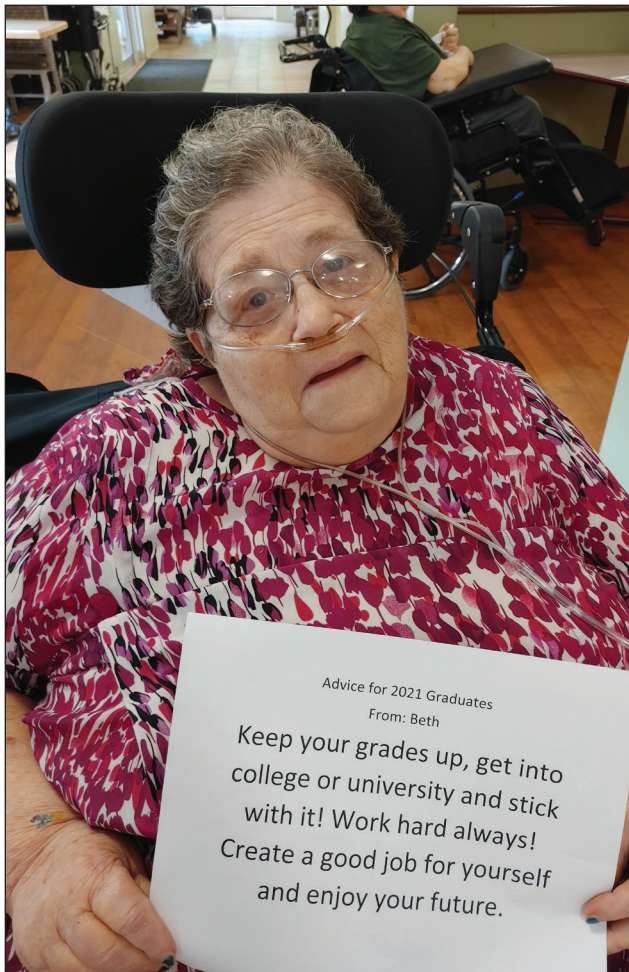 Advice for 2021 Graduates
From: Beth
Keep your grades up, get into
college or university and stick
with it! Work hard always!
Create a good job for yourself
and enjoy your future.